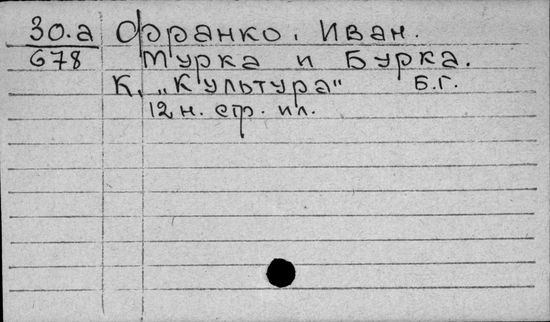 30.а Франко, Иван.
678 Мурка и Бурка.
К, „Культура" Б.Г.
12 н. стр. ил.